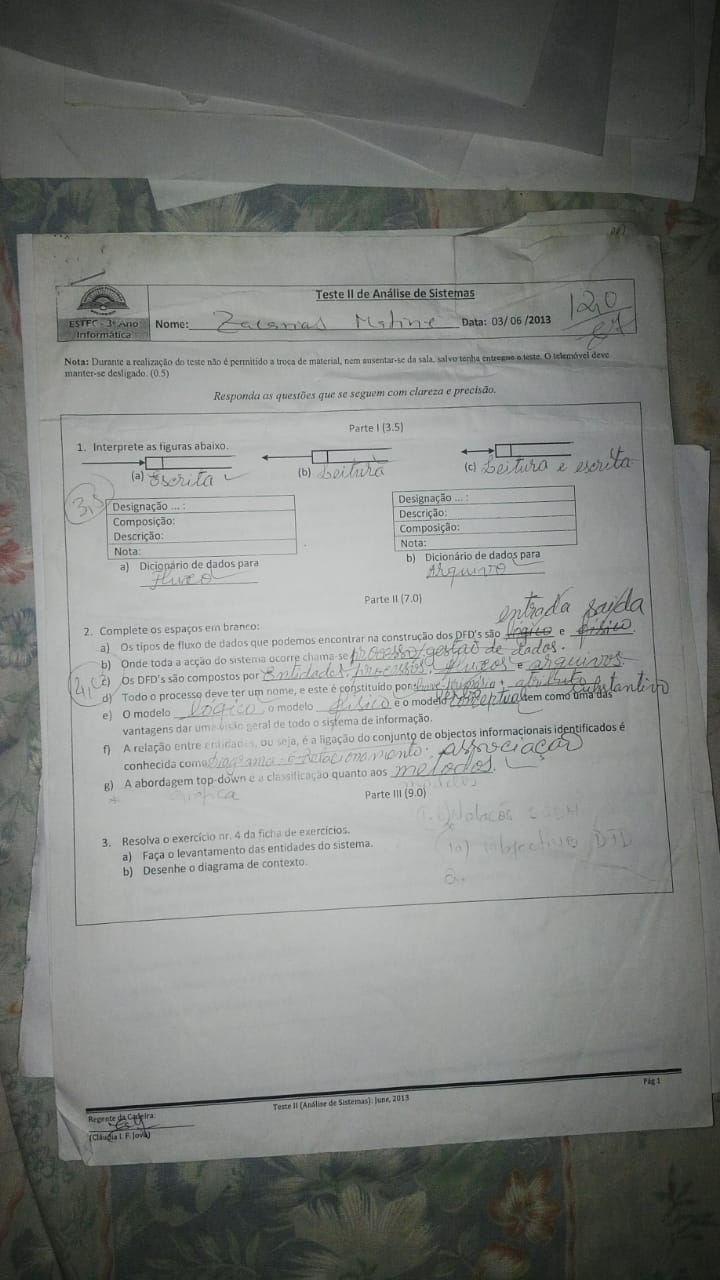 Teste II de Análise de Sistemas
ESTEC - 3º Ano
Informática
Nome: Zacarias Data: 03/06/2013
12,0
Nota: Durante a realização do teste não é permitido a troca de material, nem ausentar-se da sala, salvo tenha entregue o teste. O telemóvel deve
manter-se desligado. (0.5)
Responda as questões que se seguem com clareza e precisão.
Parte I (3.5)
1. Interprete as figuras abaixo.
(a) Escrita (b) Leitura (c) Leitura e escrita
3,5
Designação ... :
Composição:
Descrição:
Nota:
a) Dicionário de dados para
Fluxo
Designação ... :
Descrição:
Composição:
Nota:
b) Dicionário de dados para
Arquivo
Parte II (7.0)
2. Complete os espaços em branco:
entrada saida
a) Os tipos de fluxo de dados que podemos encontrar na construção dos DFD's são lógico e físico.
b) Onde toda a acção do sistema ocorre chama-se processo/gestão de dados.
c) Os DFD's são compostos por Entidades, processos, fluxos e arquivos.
d) Todo o processo deve ter um nome, e este é constituído por verbo + atributo substantivo
e) O modelo lógico o modelo físico e o modelo conceptual tem como uma das
vantagens dar uma visão geral de todo o sistema de informação.
f) A relação entre entidades, ou seja, é a ligação do conjunto de objectos informacionais identificados é
conhecida como associação
g) A abordagem top-down é a classificação quanto aos metodos.
Parte III (9.0)
3. Resolva o exercício nr. 4 da ficha de exercícios.
a) Faça o levantamento das entidades do sistema.
b) Desenhe o diagrama de contexto.
Pág 1
Teste II (Análise de Sistemas): June, 2013
Regente da Cadeira:
(Cláudia I. F. Jova)